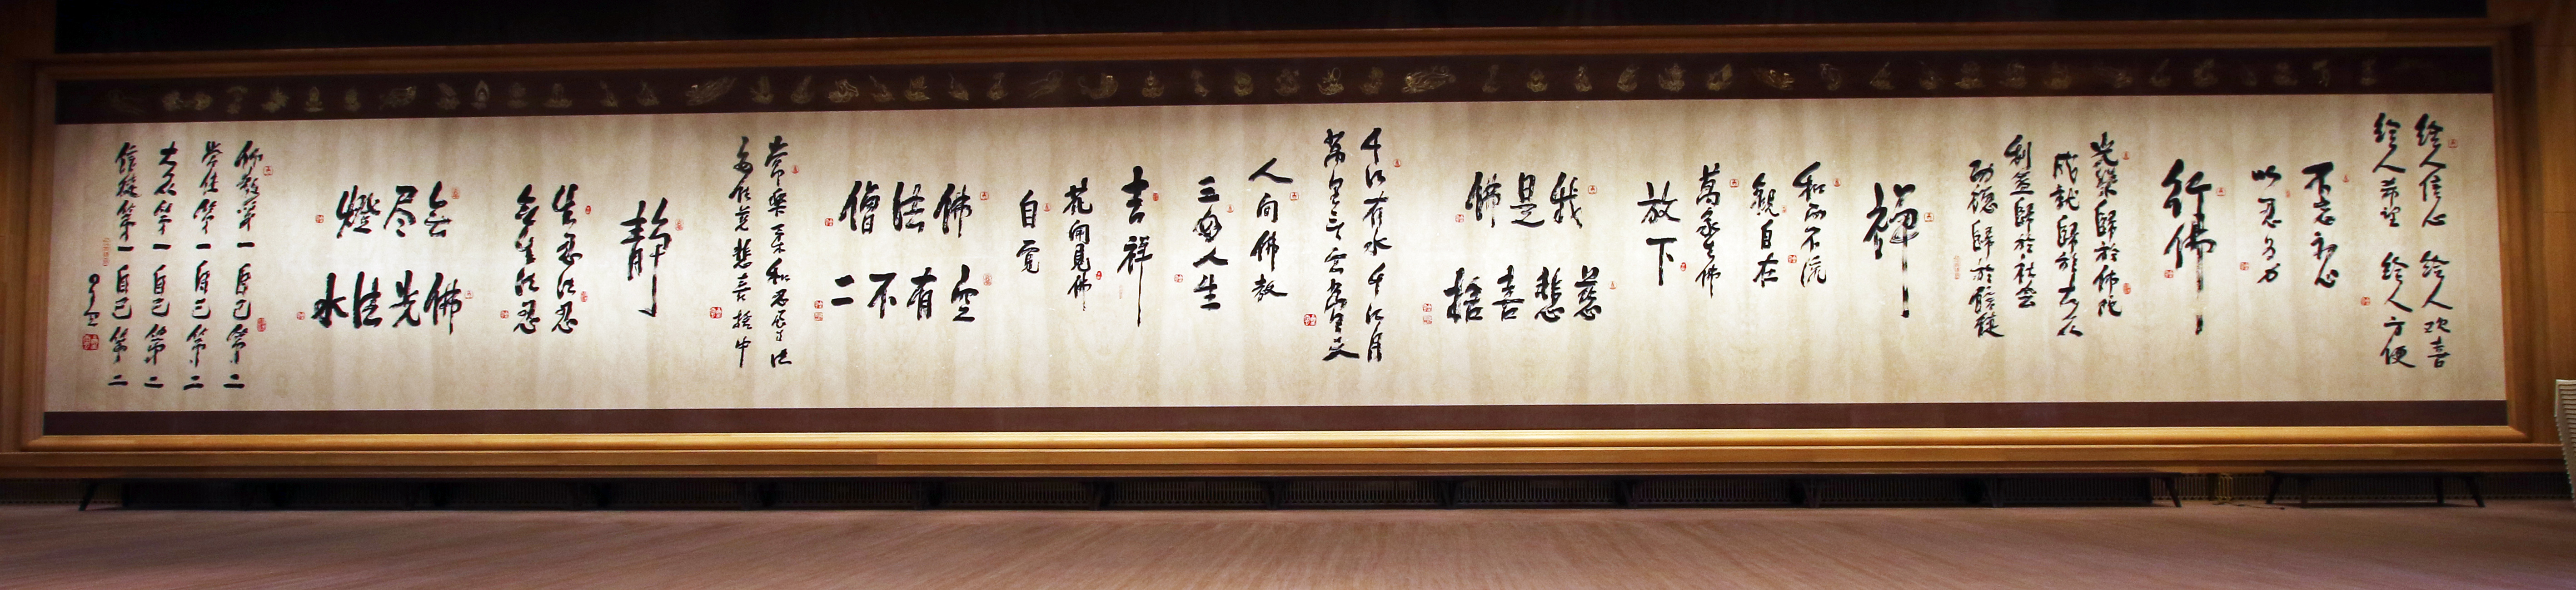 给人信心 给人欢喜
给人希望 给人方便
不忘初心
以忍为力
行佛
光榮歸於佛陀
成就歸於大众
利益歸於社会
功德歸於信徒
禪
和而不流
觀自在
萬家生佛
放下
我是佛
慈悲喜捨
千江有水千江月
萬里无云萬里天
人间佛教
三好人生
吉祥
花開見佛
自覺
佛法僧
空有不二
常樂柔和忍辱法
安住慈悲喜捨中
靜
生忍法忍
無生法忍
無尽燈
佛光法水
佛教第一 自己第二
常住第一 自己第二
大众第一 自己第二
信徒第一 自己第二
星云